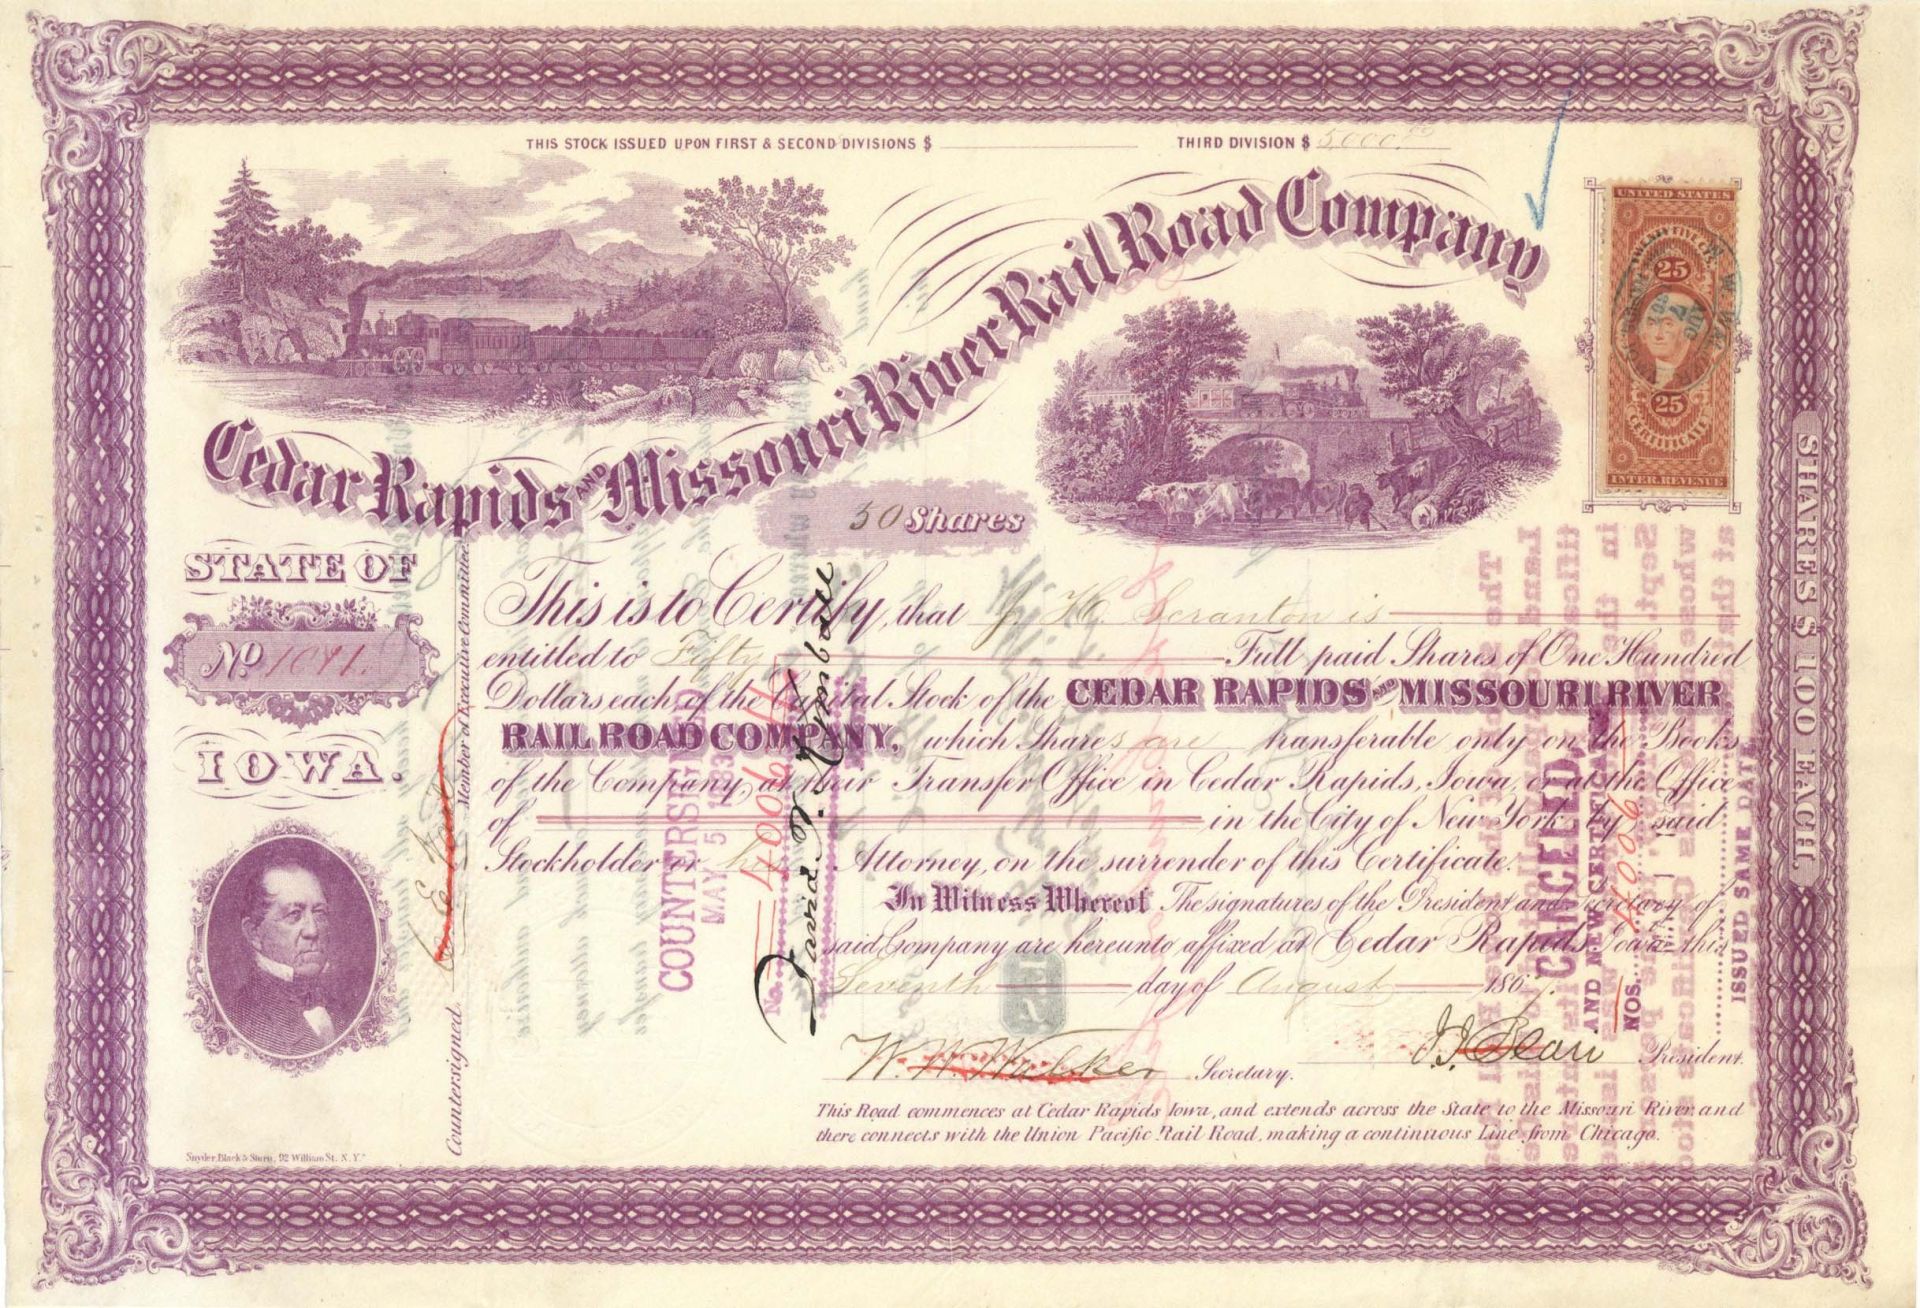 THIS STOCK ISSUED UPON FIRST & SECOND DIVISIONS $ THIRD DIVISION $ 5000.00
Cedar Rapids AND Missouri River Rail Road Company
50 Shares
UNITED STATES
TWENTY FIVE CTS.
25
25
CERTIFICATE
INTER. REVENUE
AUG 7
STATE OF
No. 1071.
IOWA.
This is to Certify, that J. H. Scranton is
entitled to Fifty Full paid Shares of One Hundred
Dollars each of the Capital Stock of the CEDAR RAPIDS AND MISSOURI RIVER
RAIL ROAD COMPANY, which Shares are transferable only on the Books
of the Company, at their Transfer Office in Cedar Rapids, Iowa, or at the Office
of in the City of New York by said
Stockholder or his Attorney, on the surrender of this Certificate.
In Witness Whereof The signatures of the President and Secretary of
said Company are hereunto affixed at Cedar Rapids Iowa this
Seventh day of August 1867.
W. W. Walker Secretary. President.
This Road commences at Cedar Rapids Iowa, and extends across the State to the Missouri River and
there connects with the Union Pacific Rail Road, making a continuous Line from Chicago.
Countersigned. Member of Executive Committee
COUNTERSIGNED
MAY 5 193
No. 4006
CANCELED,
AND NEW CERTIFICATE
NOS. 4006
ISSUED SAME DATE
SHARES 100 EACH
Snyder, Black & Sturn, 92 William St. N.Y.